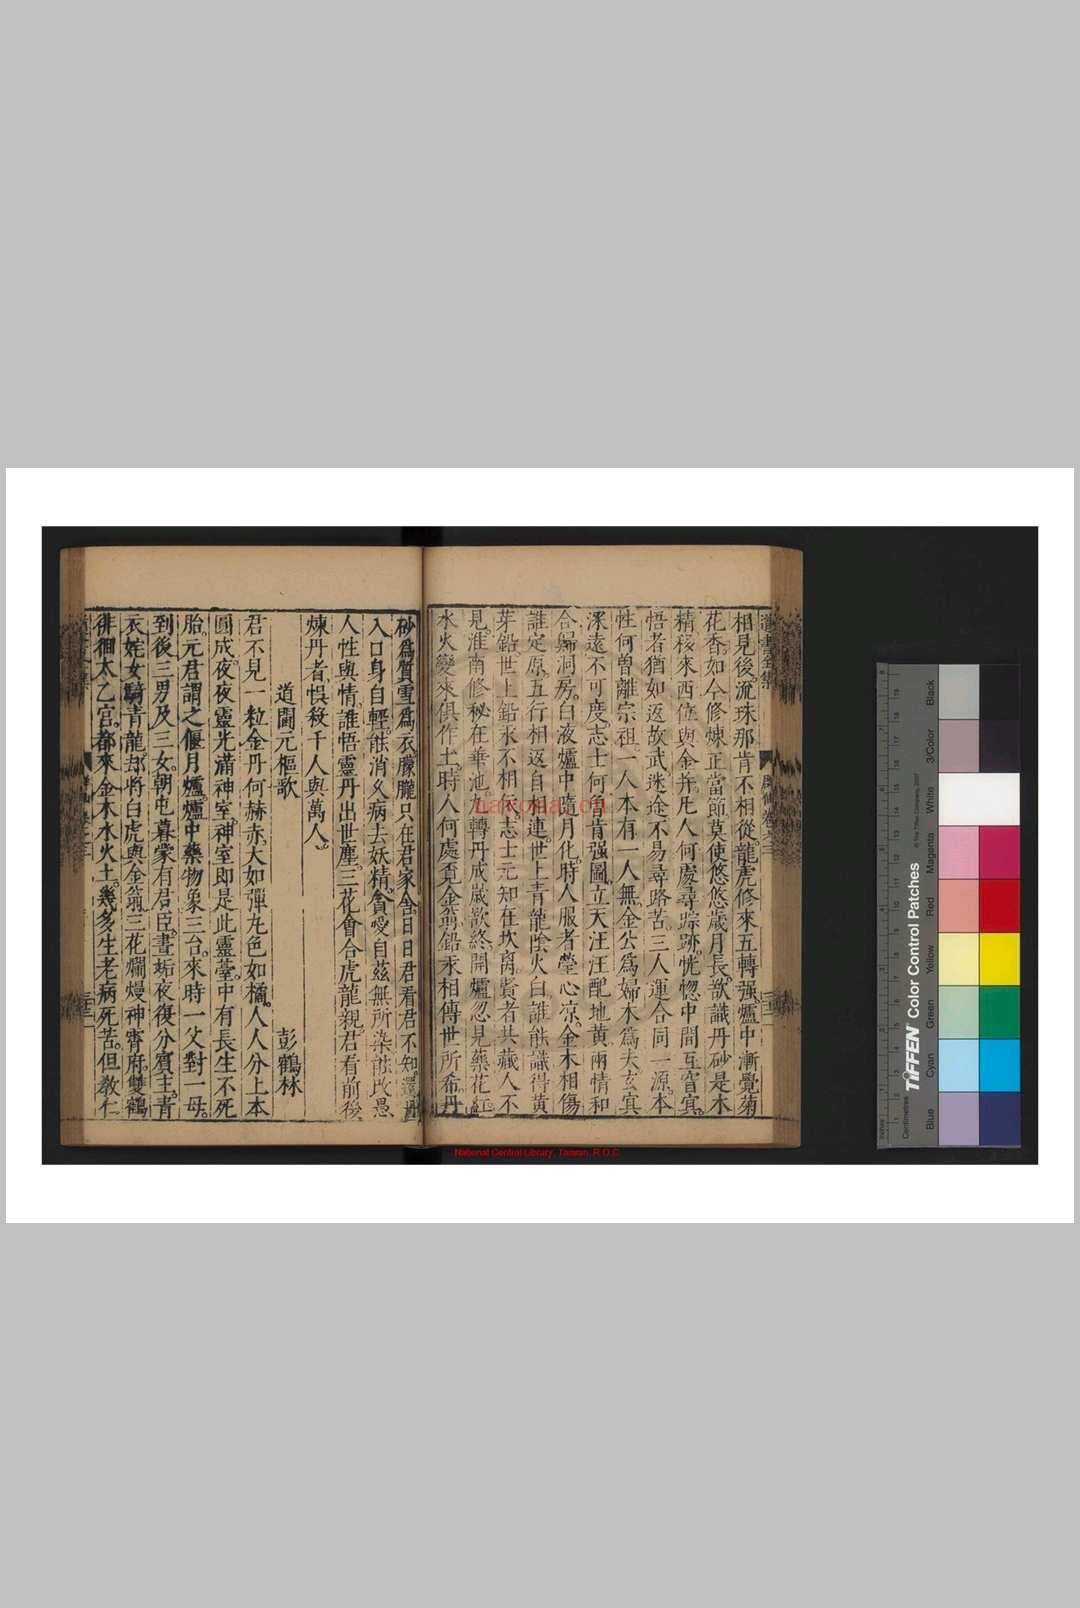 相見後流珠那肯不相從龍虎修來五轉强爐中漸覺菊
花香如今修煉正當節莫使悠悠歲月長欲識丹砂是木
精移來西位與金并凡人何處尋踪跡恍惚中間互窅冥
悟者猶如返故武迷途不易尋路苦三人運合同一源本
性何曾離宗祖一人本有一人無金公爲婦木爲夫玄冥
深遠不可度志士何曾肯强圖立天汪汪配地黄兩情和
合歸洞房白液爐中隨月化時人服者瑩心凉金木相傷
誰定原五行相返自相連世上青龍陰火白誰能識得黄
芽鉛世上鉛汞不相午志士元知在坎离賢者共藏人不
見淮南修秘在華池九轉丹成歲欲終開爐忽見藥花紅
水火變來俱作土時人何處覓金翁鉛汞相傳世所希丹
砂爲質雪爲衣朦朧只在君家舍日日君看君不知還丹
入口身自輕能消久病去妖精貪愛自茲無所染能改愚
人性與情誰悟靈丹出世塵三花會合虎龍親君看前後
煉丹者悮殺千人與萬人
道閫元樞歌
彭鶴林
君不見一粒金丹何赫赤大如彈丸色如橘人人分上本
圓成夜夜靈光滿神室神室即是此靈臺中有長生不死
胎元君謂之偃月爐爐中藥物象三台來時一父對一母
到後三男及三女朝屯暮蒙有君臣晝垢夜復分賓主青
衣姹女騎青龍却將白虎與金翁三花爛熳神霄府雙鶴
徘徊太乙宮都來金木水火土幾多生老病死苦但教仁
道書全集
Black
3/Color
White
Magenta
Red
Yellow
Green
Cyan
Blue
TIFFEN Color Control Patches
© The Tiffen Company, 2007
Centimetres
Inches
National Central Library, Taiwan, R.O.C